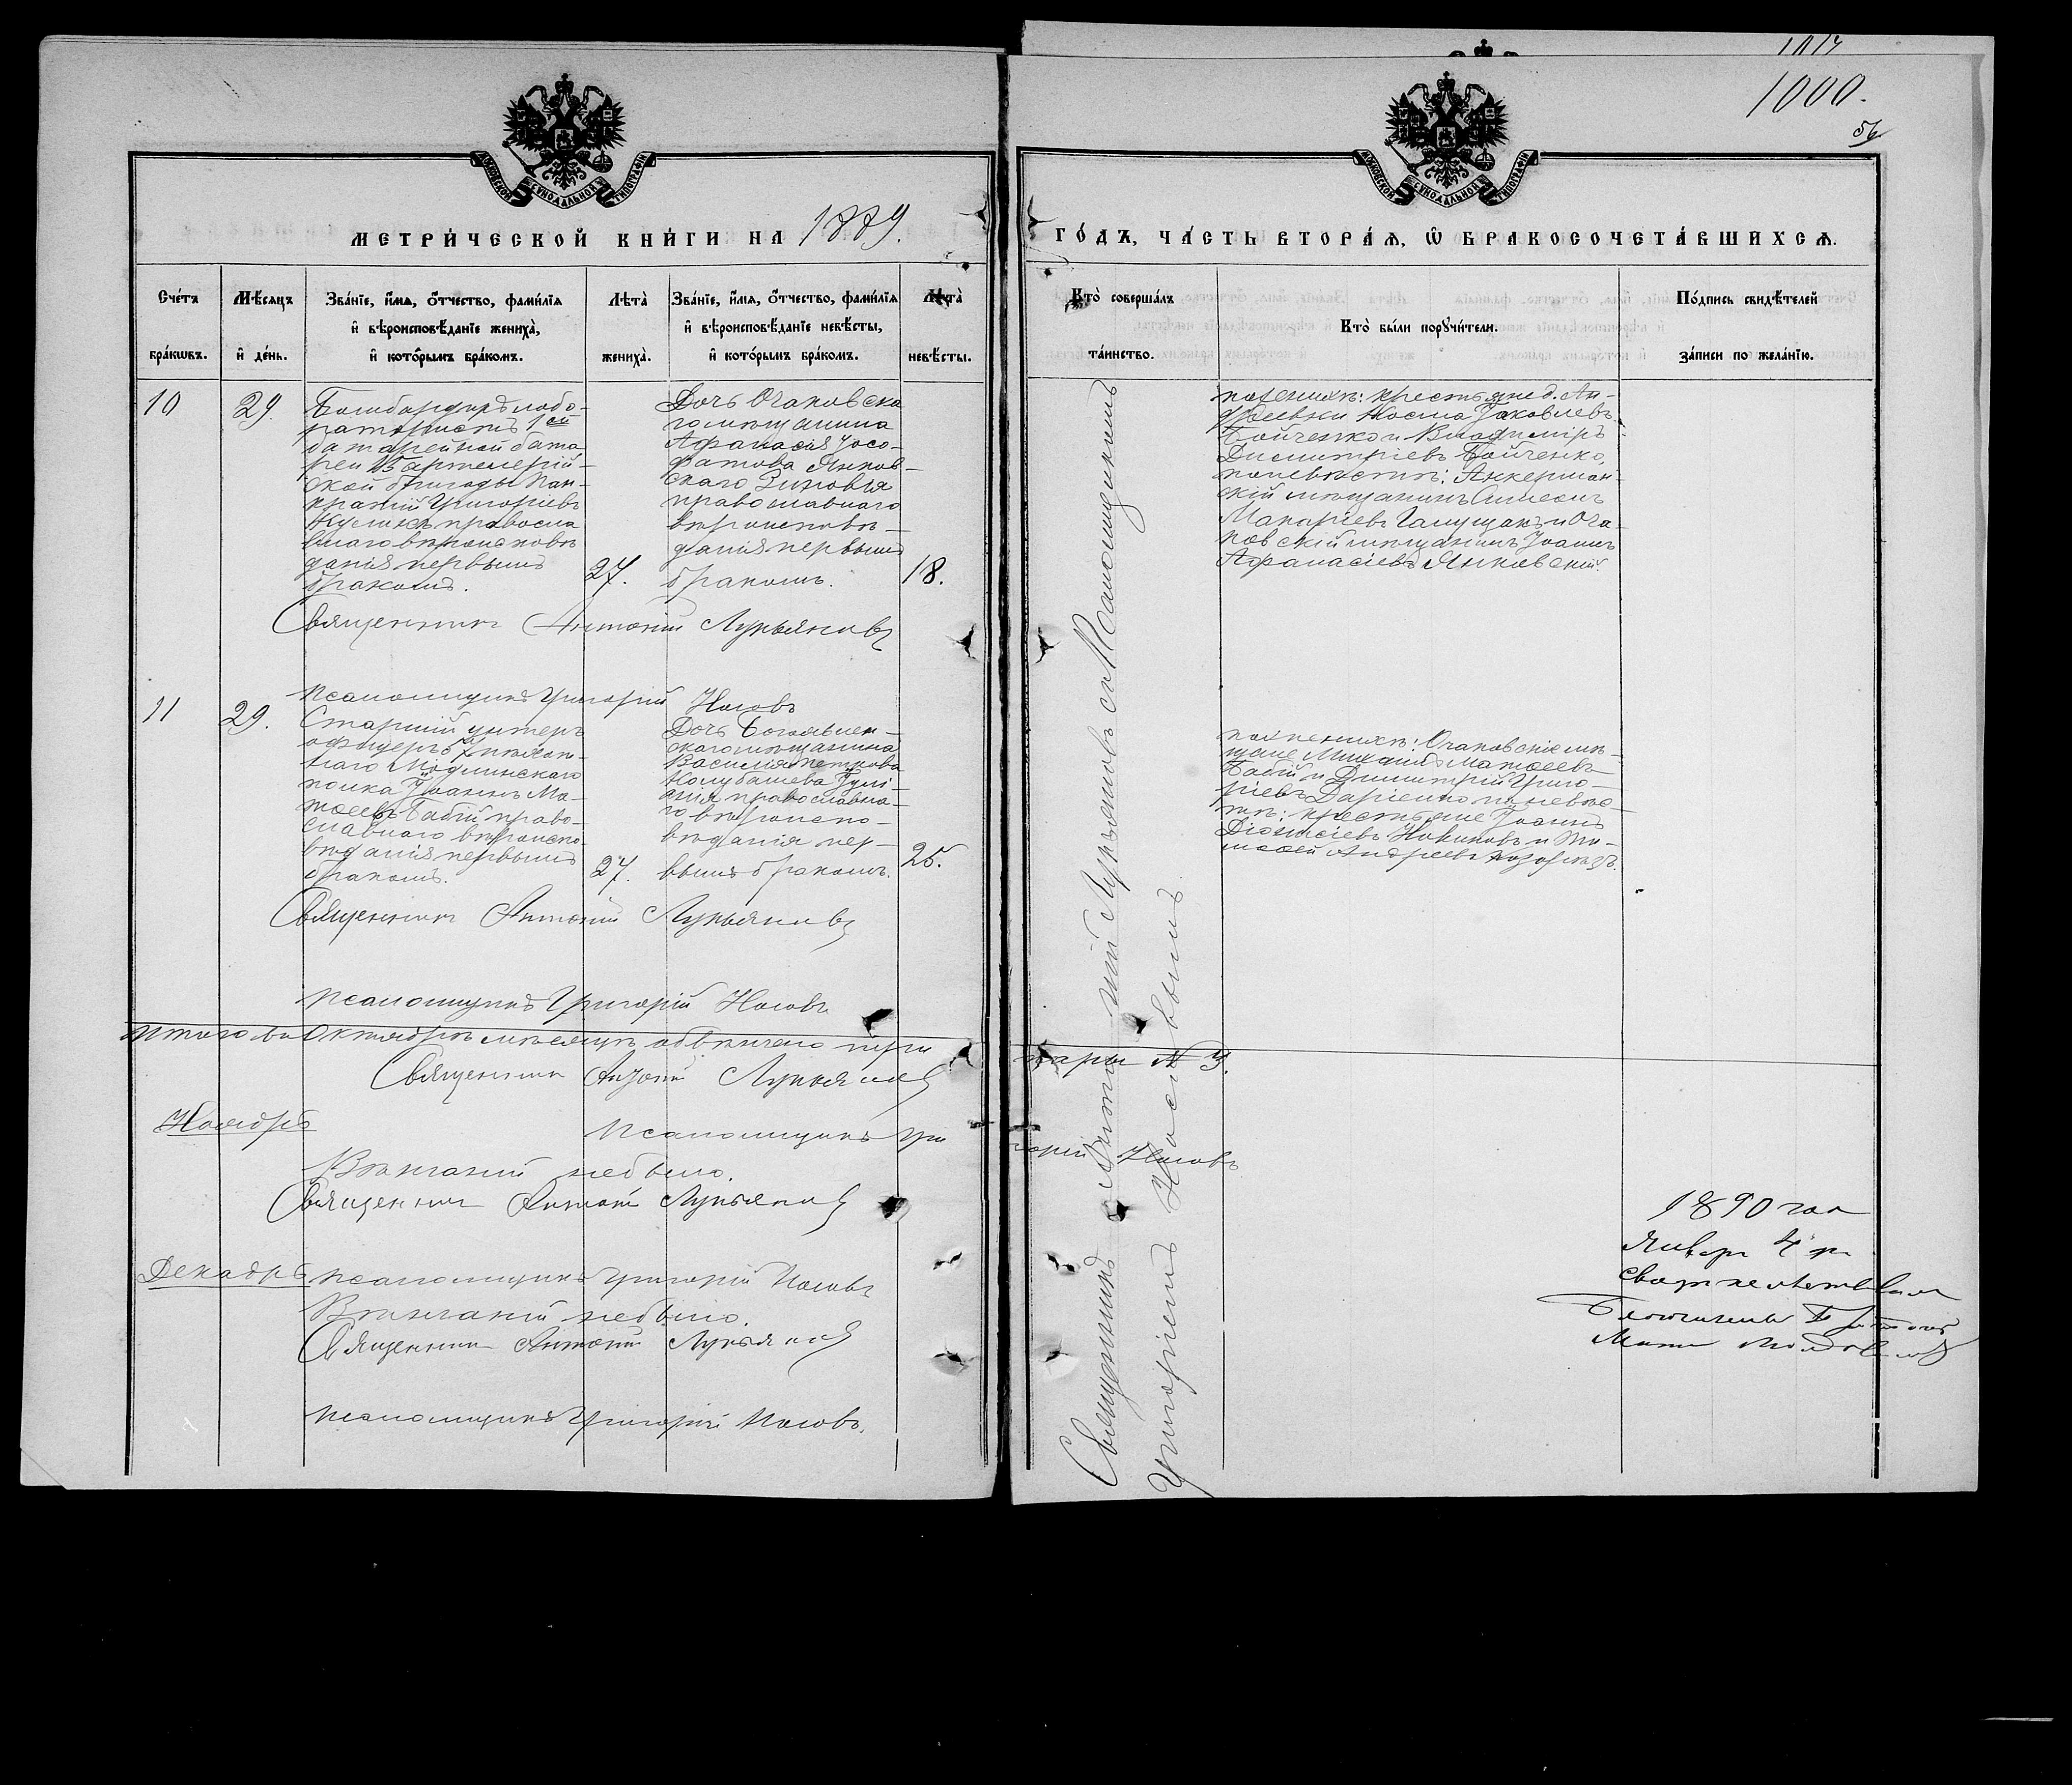 1000.
56
МОСКОВСКОЙ СѴНОДАЛЬНОЙ ТИПОГРАФІИ
МОСКОВСКОЙ СѴНОДАЛЬНОЙ ТИПОГРАФІИ
МЕТРИ́ЧЕСКОЙ КНИ́ГИ НА 1889.
ГО́ДЪ, ЧА́СТЬ ВТОРА́Ѧ, Ѽ БРАКОСОЧЕТА́ВШИХСѦ.
Сче́тъ
бра́кѡвъ.
Мѣ́сяцъ
и҆ де́нь.
Зва́нїе, и҆́мѧ, ѻ҆́тчество, фамі́лїя
и҆ вѣроисповѣ́данїе жениха̀,
и҆ кото́рымъ бра́комъ.
Лѣта̀
жениха̀.
Зва́нїе, и҆́мѧ, ѻ҆́тчество, фамі́лїя
и҆ вѣроисповѣ́данїе невѣ́сты,
и҆ кото́рымъ бра́комъ.
Лѣта̀
невѣ́сты.
Кто̀ соверша́лъ
та́инство.
Кто̀ бы́ли порꙋчи́тели.
По́дпись свидѣ́телей
за́писи по жела́нїю.
10
29.
Бомбардиръ лабо-
ратористъ 1ой
батарейной бата
реи 15 артилерій-
ской бригады Пан-
кратій Григоріевъ
православ
наго вѣроисповѣ
данія первымъ
бракомъ.
27.
Дочь Очаковска
го мѣщанина
Афанасія Іосо-
фатова Янков-
скаго Зиновія
православнаго
вѣроисповѣ-
данія первымъ
бракомъ.
18.
Священникъ Антоній Лукьяновъ
Псаломщикъ Григорій Носовъ
по женихѣ: крестьяне д. Ан-
дреевки Косма Іаковлевъ
Бойченко и Владиміръ
Димитріевъ Бойченко,
по невѣстѣ: Аккерман-
скій мѣщанинъ Симеонъ
Макаріевъ Галущакъ и Оча-
ковскій мѣщанинъ Іоаннъ
Афанасіевъ Янковскій.
11
29.
Старшій унтеръ
офицеръ 57 пѣхот-
наго Модлинскаго
полка Іоаннъ Ма-
тѳеевъ Бабій право-
славнаго вѣроиспо-
вѣданія первымъ
бракомъ.
27.
Дочь Богоявлен-
скаго мѣщанина
Василія Петрова
Колубашева Іулі-
анія православна-
го вѣроиспо-
вѣданія пер-
вымъ бракомъ.
25.
Священникъ Антоній Лукьяновъ
Псаломщикъ Григорій Носовъ
по женихѣ: Очаковскіе мѣ-
щане Михаилъ Матѳеевъ
Бабій и Димитрій Григо-
ріевъ Даріенко по невѣс-
тѣ: крестьяне Іоаннъ
Діонисіевъ Новиковъ и Ти-
моѳей Андреевъ
Священникъ Антоній Лукьяновъ съ Псаломщикомъ
Григоріемъ Носовымъ.
Итого въ Октябрѣ мѣсяцѣ обвѣнчено три пары № 3.
Священникъ Антоній Лукьяновъ
Псаломщикъ Григорій Носовъ
Ноябрь
Вѣнчаній небыло.
Священникъ Антоній Лукьяновъ
Псаломщикъ Григорій Носовъ
Декабрь
Вѣнчаній небыло.
Священникъ Антоній Лукьяновъ
Псаломщикъ Григорій Носовъ.
1890 года
Января 4 дня